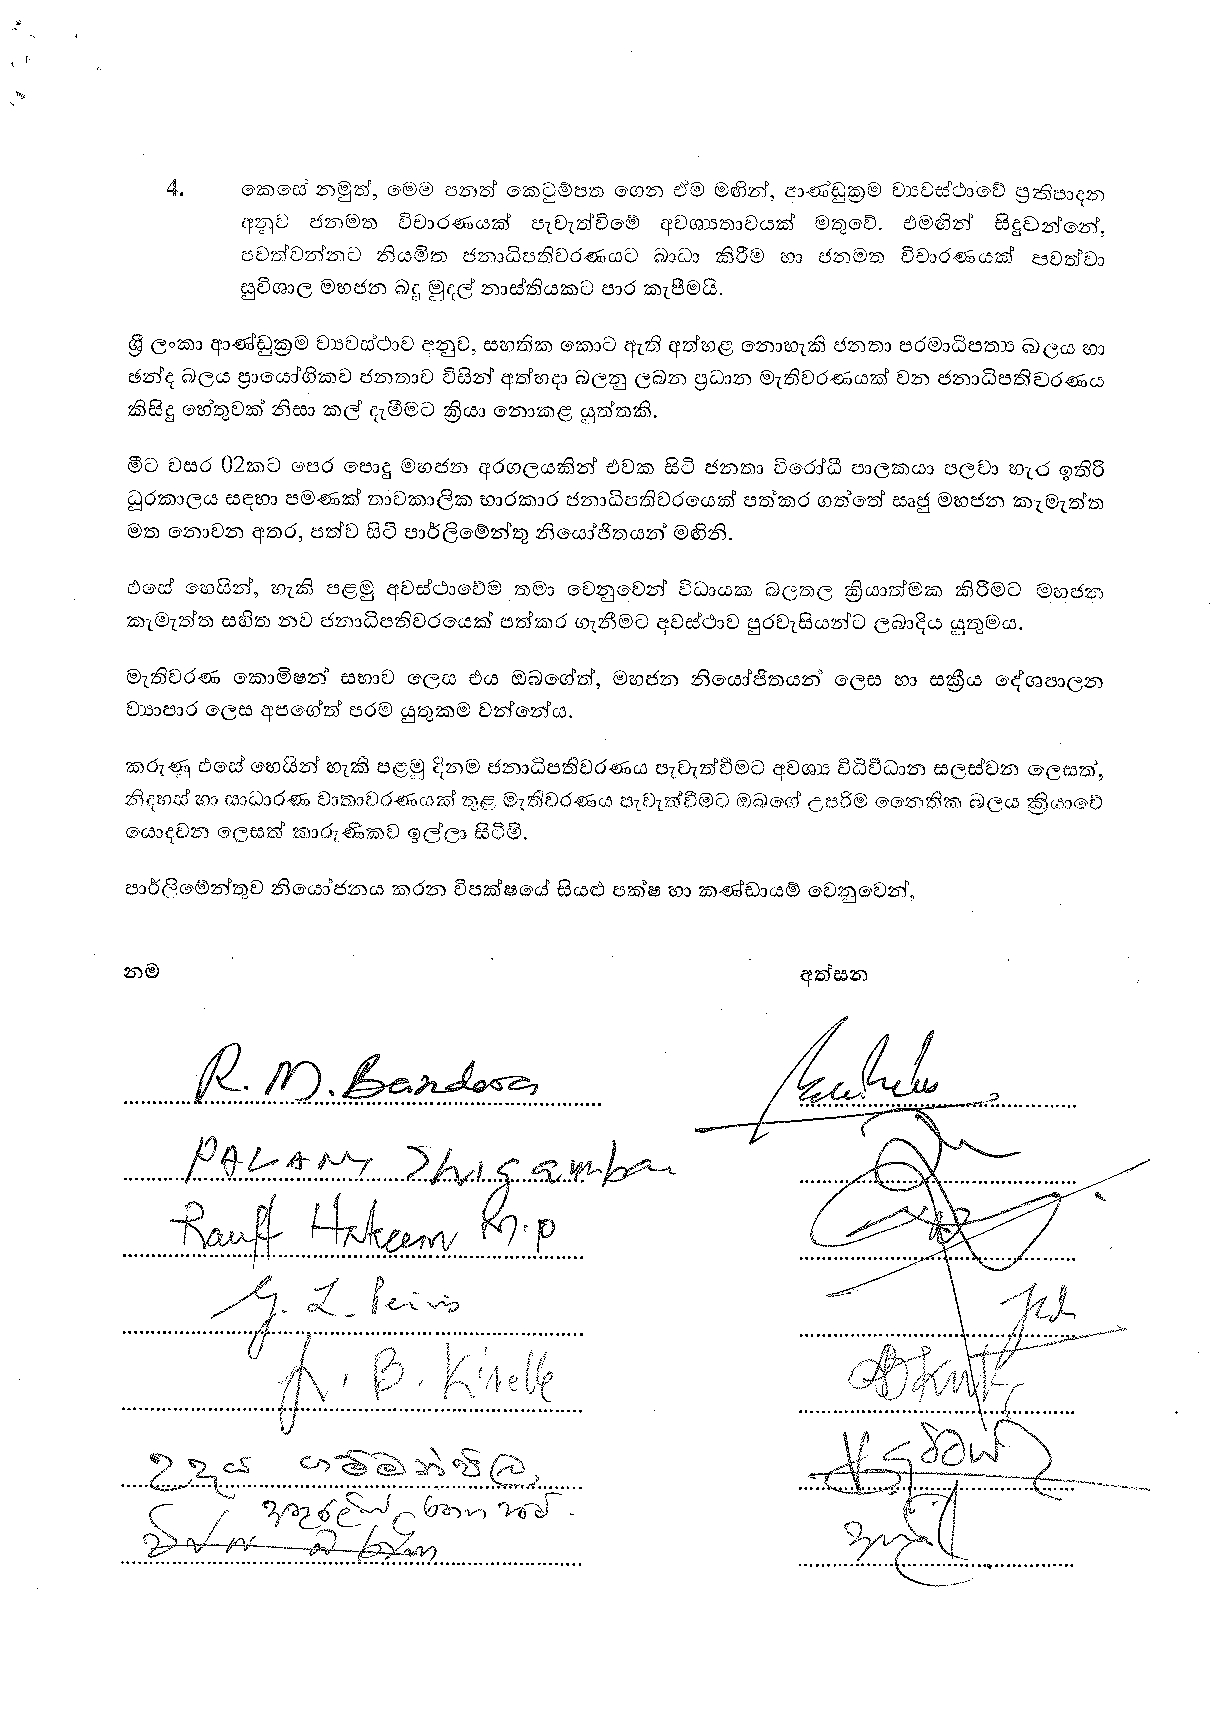 4. කෙසේ නමුත්, මෙම පනත් කෙටුම්පත ගෙන ඒම මඟින්, ආණ්ඩුක්‍රම ව්‍යවස්ථාවේ ප්‍රතිපාදන
අනුව ජනමත විචාරණයක් පැවැත්වීමේ අවශ්‍යතාවයක් මතුවේ. එමඟින් සිදුවන්නේ,
පවත්වන්නට නියමිත ජනාධිපතිවරණයට බාධා කිරීම හා ජනමත විචාරණයක් පවත්වා
සුවිශාල මහජන බදු මුදල් නාස්තියකට පාර කැපීමයි.
ශ්‍රී ලංකා ආණ්ඩුක්‍රම ව්‍යවස්ථාව අනුව, සහතික කොට ඇති අත්හළ නොහැකි ජනතා පරමාධිපත්‍ය බලය හා
ඡන්ද බලය ප්‍රායෝගිකව ජනතාව විසින් අත්හදා බලනු ලබන ප්‍රධාන මැතිවරණයක් වන ජනාධිපතිවරණය
කිසිදු හේතුවක් නිසා කල් දැමීමට ක්‍රියා නොකළ යුත්තකි.
මීට වසර 02කට පෙර පොදු මහජන අරගලයකින් එවක සිටි ජනතා විරෝධී පාලකයා පලවා හැර ඉතිරි
ධූරකාලය සඳහා පමණක් තාවකාලික භාරකාර ජනාධිපතිවරයෙක් පත්කර ගත්තේ සෘජු මහජන කැමැත්ත
මත නොවන අතර, පත්ව සිටි පාර්ලිමේන්තු නියෝජිතයන් මඟිනි.
එසේ හෙයින්, හැකි පළමු අවස්ථාවේම තමා වෙනුවෙන් විධායක බලතල ක්‍රියාත්මක කිරීමට මහජන
කැමැත්ත සහිත නව ජනාධිපතිවරයෙක් පත්කර ගැනීමට අවස්ථාව පුරවැසියන්ට ලබාදිය යුතුමය.
මැතිවරණ කොමිෂන් සභාව ලෙය එය ඔබගේත්, මහජන නියෝජිතයන් ලෙස හා සක්‍රීය දේශපාලන
ව්‍යාපාර ලෙස අපගේත් පරම යුතුකම වන්නේය.
කරුණු එසේ හෙයින් හැකි පළමු දිනම ජනාධිපතිවරණය පැවැත්වීමට අවශ්‍ය විධිවිධාන සලස්වන ලෙසත්,
නිදහස් හා සාධාරණ වාතාවරණයක් තුළ මැතිවරණය පැවැත්වීමට ඔබගේ උපරිම නෛතික බලය ක්‍රියාවේ
යොදවන ලෙසත් කාරුණිකව ඉල්ලා සිටිමි.
පාර්ලිමේන්තුව නියෝජනය කරන විපක්ෂයේ සියළු පක්ෂ හා කණ්ඩායම් වෙනුවෙන්,
නම අත්සන
R. M. Bandara
PALANY Thigambaram
Rauff Hakeem M.P
G. L. Peiris
J. B. Kirielle
උදය ගම්මන්පිල
අතුරලියේ රතන හිමි.